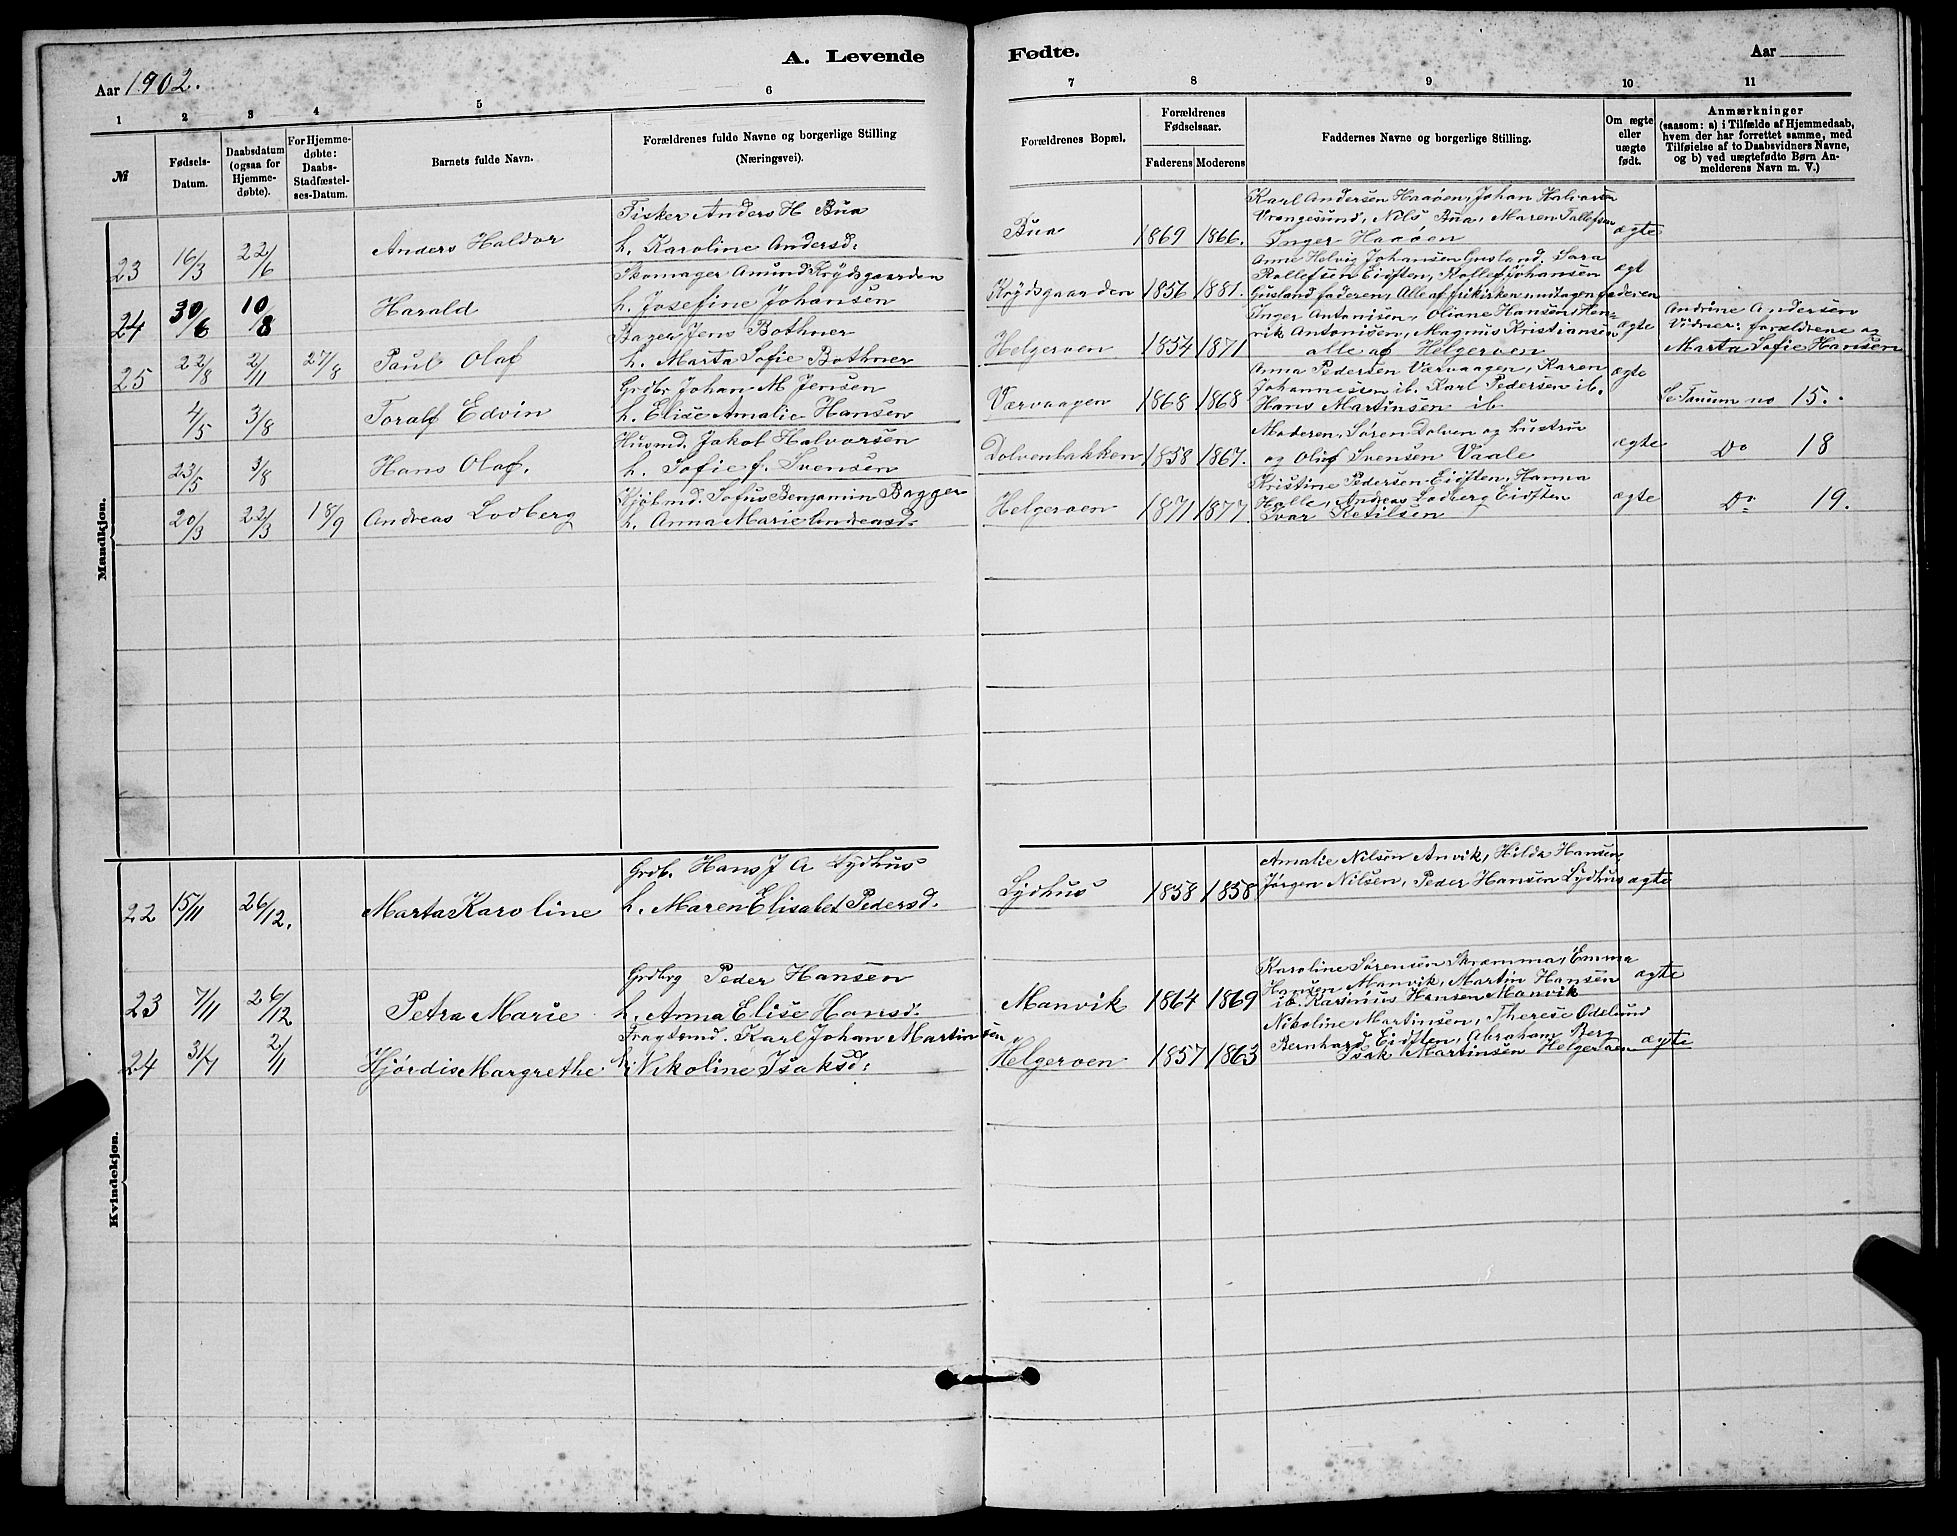 A. Levende
Fødte.
Aar 1902.
Aar
1 2 3 4 5 6
7 8 9 10 11
№
Fødsels-
Datum.
Daabsdatum
(ogsaa for
Hjemme-
døbte).
For Hjemme-
døbte:
Daabs-
Stadfæstel-
ses-Datum.
Barnets fulde Navn.
Forældrenes fulde Navne og borgerlige Stilling
(Næringsvei).
Forældrenes Bopæl.
Forældrenes
Fødselsaar.
Faderens Moderens
Faddernes Navne og borgerlige Stilling.
Om ægte
eller
uægte
født.
Anmærkninger
(saasom: a) i Tilfælde af Hjemmedaab,
hvem der har forrettet samme, med
Tilføielse af to Daabsvidners Navne,
og b) ved uægtefødte Børn An-
melderens Navn m. V.)
Mandkjøn.
23 16/3 22/6 Anders Haldor
Fisker Anders H Bua
h. Karoline Andersd:
Bua 1869 1866.
Karl Andersen Haaøen, Johan Halvorsen
Vrangesund, Nils Bua, Maren Tollefsen
Inger Haaøen
ægte
24 30/6 10/8 Harald
Skomager Amund Røydsgaarden
h. Josefine Johansen
Røydsgaarden 1856 1881.
Anne Helvig Johansen Gusland, Sara
Rollefsen Eidsten, Rollef Johansen
Gusland faderen, Alle af frikirken undtagen faderen
ægt
25 22/8 2/11 27/8 Paul Olaf
Bager Jens Bothner
h. Marta Sofie Bothner
Helgeroen 1854 1871
Inger Antonisen, Oliane Hansen, Hen-
rik Antonisen, Magnus Kristiansen
alle af Helgeroen
ægte
Andrine Andersen
Vidner: forældrene og
Marta Sofie Hansen
4/5 3/8 Toralf Edvin
Grdbr Johan M Jensen
h. Elise Amalie Hansen
Værvaagen 1868 1868
Anna Pedersen Værvaagen, Karen
Johannessen ib. Karl Pedersen ib.
Hans Martinsen ib
ægte
Se Tanum no 15.
23/5 3/8 Hans Olaf.
Husmd. Jakob Halvorsen
h. Sofie f. Svensen
Dolvenbakken 1858 1867.
Moderen, Søren Dolven og hustru
og Oluf Svensen Vaale
ægte
Do 18
20/3 22/3 18/9 Andreas Lodberg
Kjøbmd. Sofus Benjamin Bagger
h. Anna Marie Andreasd.
Helgeroen 1871 1877.
Kristine Pedersen Eidsten, Hanna
Halle, Andreas Lodberg Eidsten
Ivar Ketilsen
ægte
Do 19.
Kvindekjøn.
22 15/11 26/12. Marta Karoline
Grdb. Hans J A Lydhus
h. Maren Elisabet Pedersd.
Lydhus 1858 1858
Amalie Nilsen Anvik, Hilda Hansen
Jørgen Nilsen, Peder Hansen Lydhus
ægte
23 7/11 26/12 Petra Marie
Grdbrg Peder Hansen
h. Anna Elise Hansd.
Manvik 1864 1869
Karoline Sørensen Skramma, Emma
Hansen Manvik, Martin Hansen
ib. Karinius Hansen Manvik
ægte
24 31/7 2/11 Hjørdis Margrethe
Fragtemd. Karl Johan Martinsen
h. Nikoline Isaksd:
Helgeroen 1857 1863
Nikoline Martinsen, Therese Odelund
Bernhard Eidsten, Abraham Berg
Isak Martinsen Helgeroen
ægte